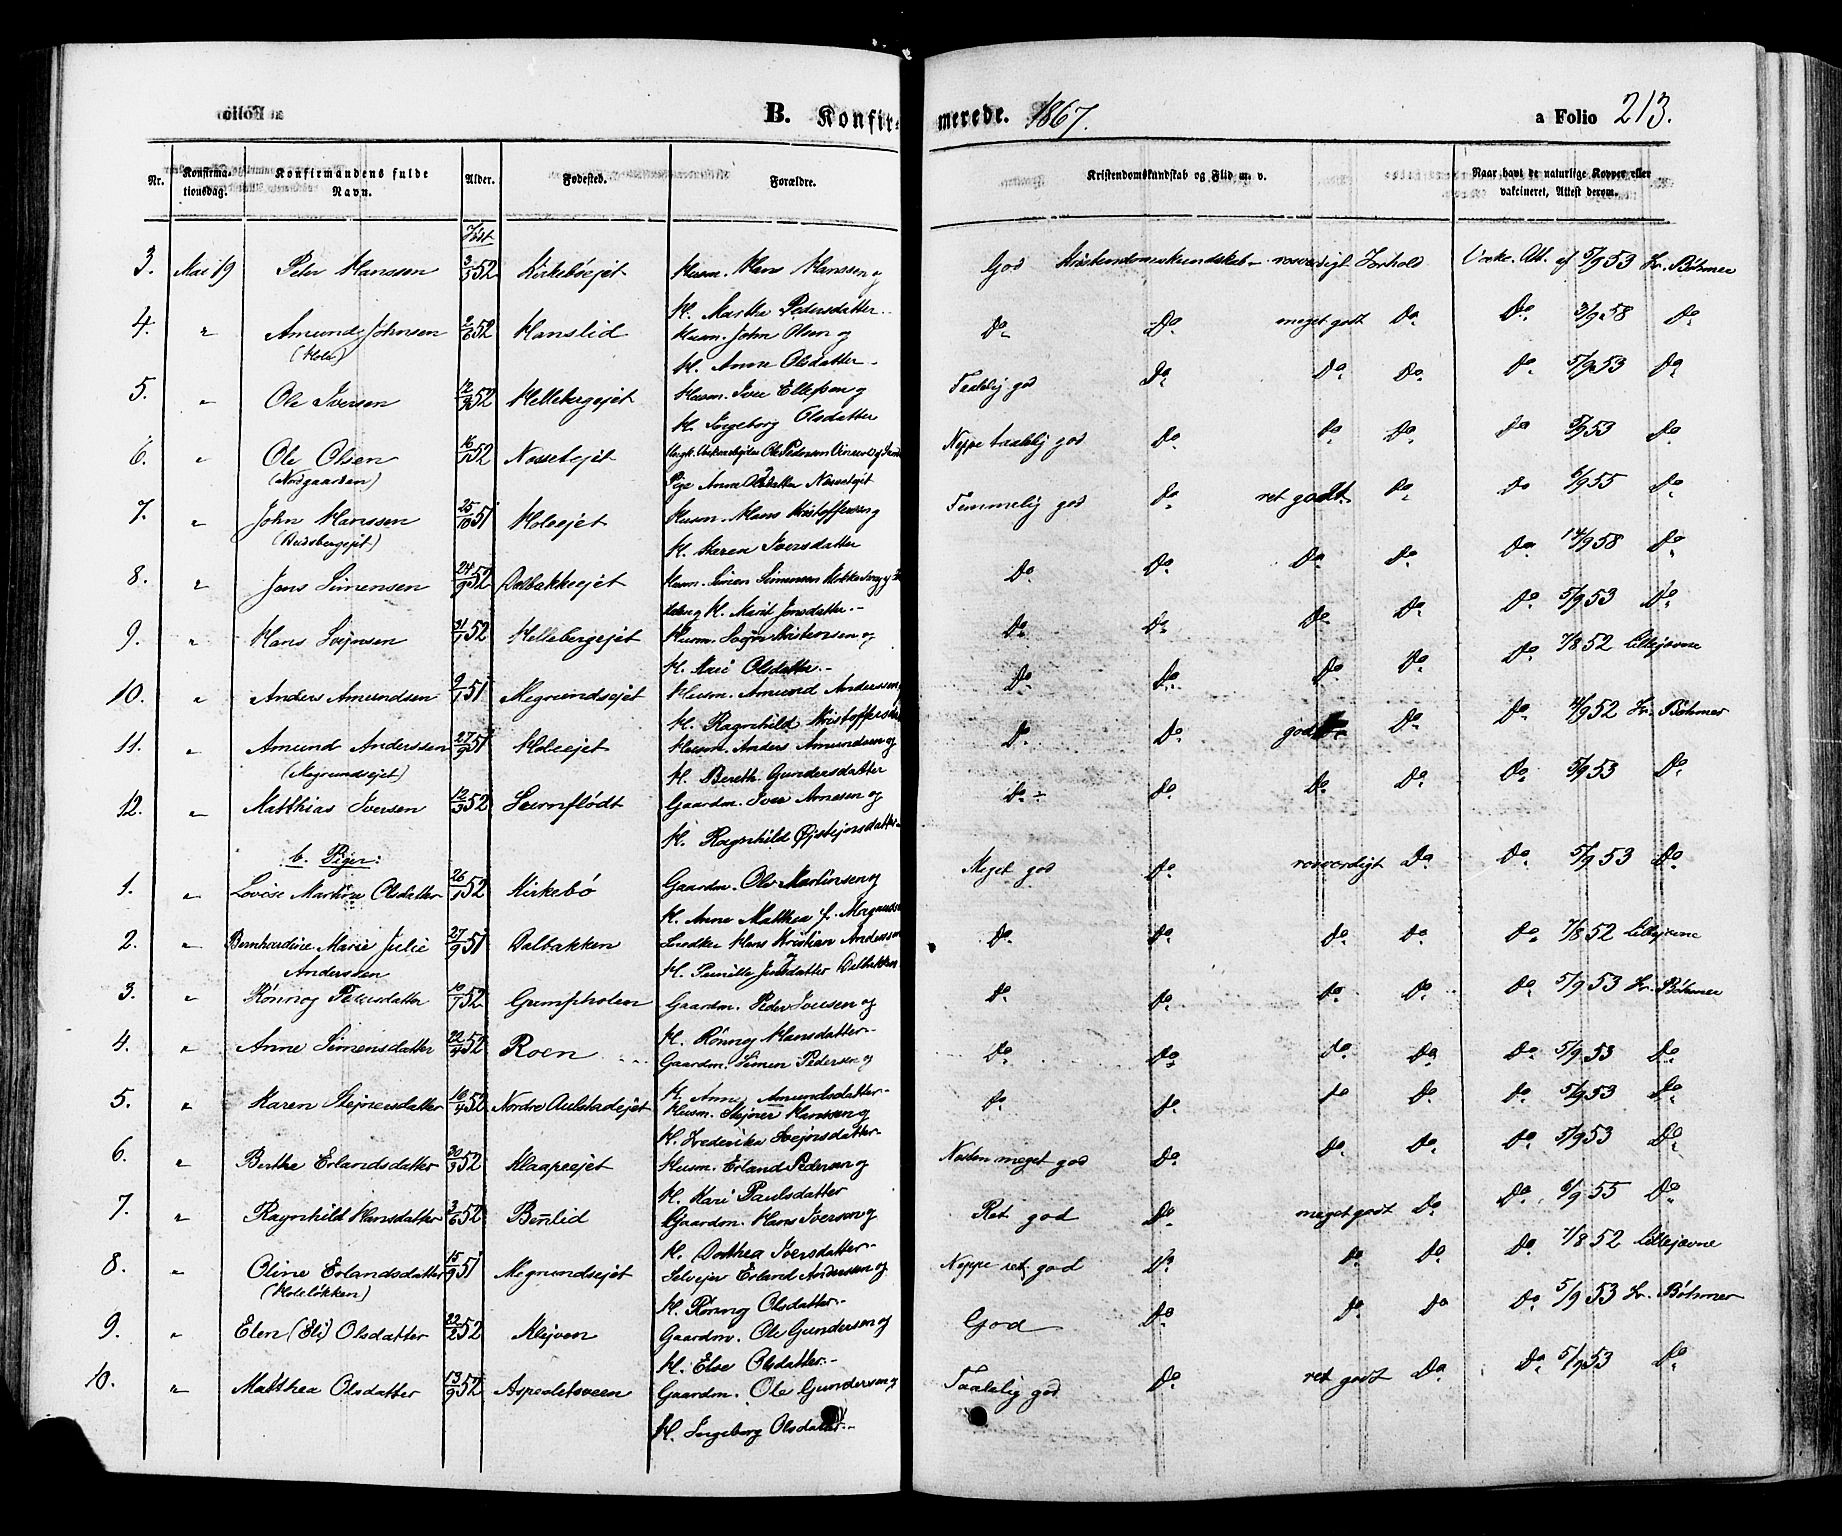 B. Konfirmerede. 1867. a Folio 213.
Nr. Konfirmationsdag. Konfirmandens fulde Navn. Alder. Fødested. Forældre. Kristendomskundskab og Flid m. v. Naar havt de naturlige Kopper eller vakcineret, Attest derom.
3. Mai 19 Peder Hanssen 3/5 52 Kirkebøejet Husm. Hans Hanssen og God Kristendomskundskab - rosværdigt Forhold Vakc. Att. af 5/9 53 Hr. Bøhmer
H. Marthe Pedersdatter
4. " Amund Johnsen 2/6 52 Hanslid Husm. John Olsen og Do Do meget godt Do Do 3/9 58 Do
(Hole) H. Anne Olsdatter
5. " Ole Iversen 12/3 52 Hellebergejet Husm. Iver Ellefsen og Taalelig god Do Do Do Do 5/9 53 Do
H. Ingeborg Olsdatter
6. " Ole Olsen 16/1 52 Nossetejet Ole Pedersen Neppe taalelig god Do Do Do Do 5/9 53 Do
(Nordgaarden) Pige Anne Olsdatter Nossetejet
7. " John Hanssen 25/10 51 Holeejet Husm. Hans Kristoffersen og Temmelig god Do ret godt Do Do 6/9 55 Do
H. Karen Iversdatter
8. " Jens Simensen 24/9 52 Dalbakkeejet Husm. Simen Simensen Do Do Do Do Do 14/9 58 Do
H. Marit Jensdatter
9. " Hans Svejnsen 31/1 52 Hellebergejet Husm. Svejn Kristensen og Do Do Do Do Do 5/9 53 Do
H. Kari Olsdatter
10. " Anders Amundsen 9/1 51 Megrundsejet Husm. Amund Anderssen Do Do Do Do Do 7/8 52 Lillejævne
H. Ragnhild
11. " Amund Anderssen 27/9 51 Holeejet Husm. Anders Amundsen og Do Do godt Do Do 4/9 52 Hr. Bøhmer
(Megrundsejet) H. Bereth Gundersdatter
12. " Matthias Iversen 12/3 52 Gaardm. Iver Arnesen og Do Do Do Do Do 5/9 53 Do
H. Ragnhild Øjstejnsdatter
b. Piger:
1. " Lovise Martine Olsdatter 26/1 52 Kirkebø Gaardm. Ole Martinsen og Meget god Do rosværdigt Do Do 5/9 53 Do
H. Anne Matthea
2. " Bernhardine Marie Julie 27/9 51 Dalbakken Hans Kristian Anderssen Do Do Do Do Do 7/8 52 Lillejævne
Anderssen H. Pernille Jensdatter Dalbakken
3. " Rønnog Pedersdatter 10/1 52 Gumpholen Gaardm. Peder Iversen og Do Do Do Do Do 5/9 53 Hr. Bøhmer
H. Rønnog Hansdatter
4. " Anne Simensdatter 22/4 52 Roen Gaardm. Simen Pedersen og Do Do Do Do Do 5/9 53 Do
H. Anne Amundsdatter
5. " Karen Stejnersdatter 16/4 52 Nordre Aulstadejet Husm. Stejner Hanssen og Do Do Do Do Do 5/9 53 Do
H. Frederikke Svejnsdatter
6. " Berthe Erlandsdatter 30/3 52 Klaapeejet Husm. Erland Pedersen og Næsten meget god Do Do Do Do 5/9 53 Do
H. Kari Paulsdatter
7. " Ragnhild Hansdatter 2/6 52 Benlid Gaardm. Hans Iversen og Ret god Do meget godt Do Do 6/9 55 Do
H. Dorthea Iversdatter
8. " Oline Erlandsdatter 15/9 51 Megrundsejet Selvejer Erland Anderssen og Neppe ret god Do Do Do Do 7/8 52 Lillejævne
(Holeløkken) H. Rønnog Olsdatter
9. " Elen (Eli) Olsdatter 22/2 52 Klejven Gaardm. Ole Gundersen og God Do Do Do Do 5/9 53 Hr. Bøhmer
H. Else Olsdatter
10. " Matthea Olsdatter 13/9 52 Gaardm. Ole Gundersen og Taalelig god Do ret godt Do Do 5/9 53 Do
H. Ingeborg Olsdatter